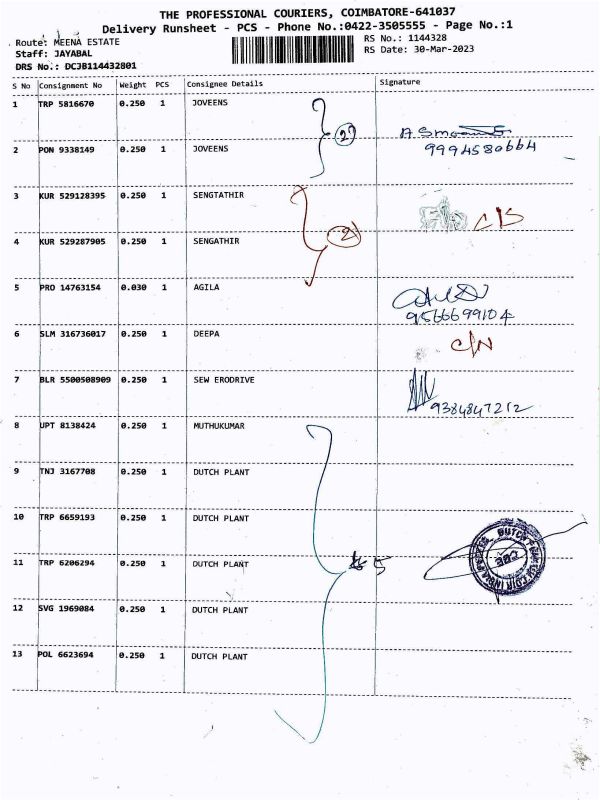 THE PROFESSIONAL COURIERS, COIMBATORE-641037
Delivery Runsheet - PCS - Phone No.:0422-3505555 - Page No.:1
Route: MEENA ESTATE
RS No.: 1144328
Staff: JAYABAL
RS Date: 30-Mar-2023
DRS No.: DCJB114432801
S No Consignment No Weight PCS Consignee Details Signature
1 TRP 5816670 0.250 1 JOVEENS
2 PON 9338149 0.250 1 JOVEENS
9994580664
3 KUR 529128395 0.250 1 SENGTATHIR
4 KUR 529287905 0.250 1 SENGATHIR
5 PRO 14763154 0.030 1 AGILA
9566699104
6 SLM 316736017 0.250 1 DEEPA
C/N
7 BLR 5500508909 0.250 1 SEW ERODRIVE
9384847212
8 UPT 8138424 0.250 1 MUTHUKUMAR
9 TNJ 3167708 0.250 1 DUTCH PLANT
10 TRP 6659193 0.250 1 DUTCH PLANT
11 TRP 6206294 0.250 1 DUTCH PLANT
5
12 SVG 1969084 0.250 1 DUTCH PLANT
13 POL 6623694 0.250 1 DUTCH PLANT